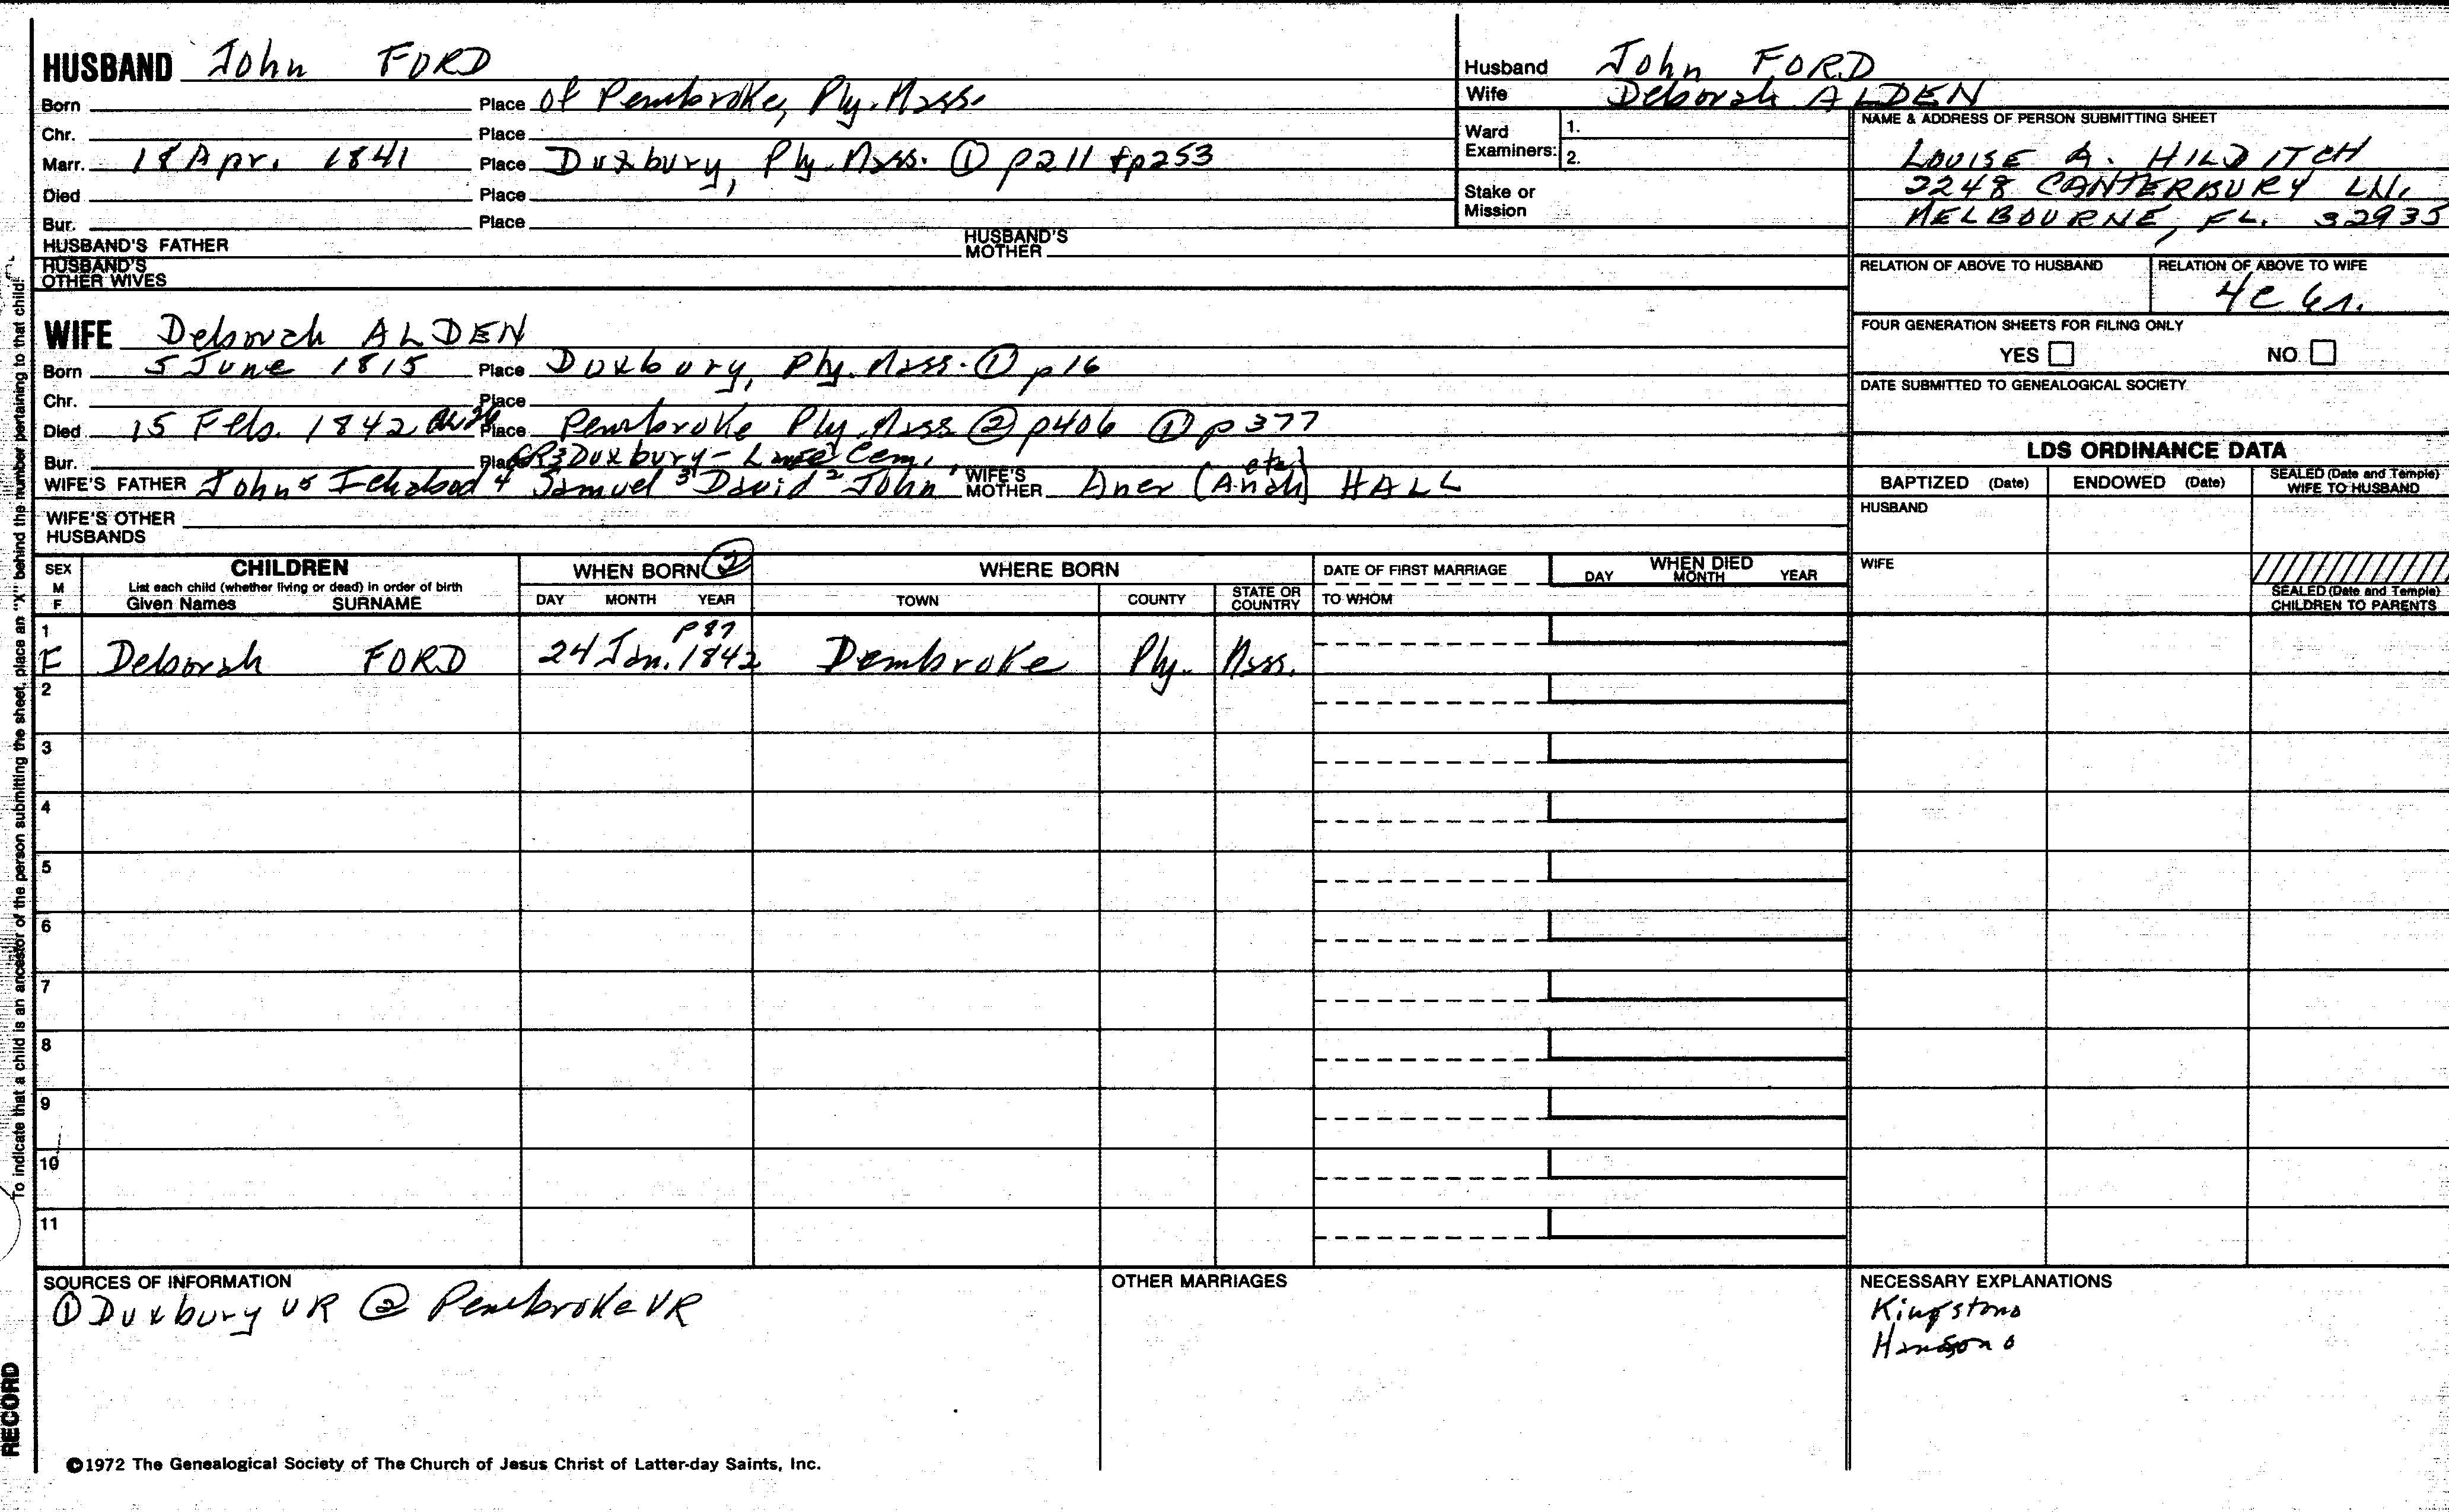 HUSBAND John FORD
Born Place of Pembroke, Ply. Mass.
Chr. Place
Marr. 18 Apr. 1841 Place Duxbury, Ply. Mass. ① p211 + p253
Died Place
Bur. Place
HUSBAND'S FATHER HUSBAND'S MOTHER
HUSBAND'S OTHER WIVES
Husband John FORD
Wife Deborah ALDEN
Ward Examiners: 1.
2.
Stake or Mission
NAME & ADDRESS OF PERSON SUBMITTING SHEET
LOUISE A. HILDITCH
2248 CANTERBURY LN.
MELBOURNE, FL. 32935
RELATION OF ABOVE TO HUSBAND RELATION OF ABOVE TO WIFE
4C 6r.
FOUR GENERATION SHEETS FOR FILING ONLY
YES NO
DATE SUBMITTED TO GENEALOGICAL SOCIETY
WIFE Deborah ALDEN
Born 5 June 1815 Place Duxbury, Ply. Mass. ① p16
Chr. Place
Died 15 Feb. 1842 Place Pembroke Ply. Mass ② p406 ① p377
Bur. Place GR3 Duxbury- Cem.
WIFE'S FATHER John 5 Ichabod 4 Samuel 3 David 2 John 1 WIFE'S MOTHER Aner (Anah etc.) HALL
WIFE'S OTHER HUSBANDS
LDS ORDINANCE DATA
BAPTIZED (Date) ENDOWED (Date) SEALED (Date and Temple) WIFE TO HUSBAND
HUSBAND
WIFE
SEALED (Date and Temple) CHILDREN TO PARENTS
SEX M F CHILDREN List each child (whether living or dead) in order of birth Given Names SURNAME
WHEN BORN ② DAY MONTH YEAR
WHERE BORN TOWN COUNTY STATE OR COUNTRY
DATE OF FIRST MARRIAGE TO WHOM
WHEN DIED DAY MONTH YEAR
1 p87
F Deborah FORD 24 Jan. 1842 Pembroke Ply. Mass.
2
3
4
5
6
7
8
9
10
11
SOURCES OF INFORMATION
① Duxbury VR ② Pembroke VR
OTHER MARRIAGES
NECESSARY EXPLANATIONS
Kingston o
Hanson o
©1972 The Genealogical Society of The Church of Jesus Christ of Latter-day Saints, Inc.
To indicate that a child is an ancestor of the person submitting the sheet, place an "X" behind the number pertaining to that child.
RECORD